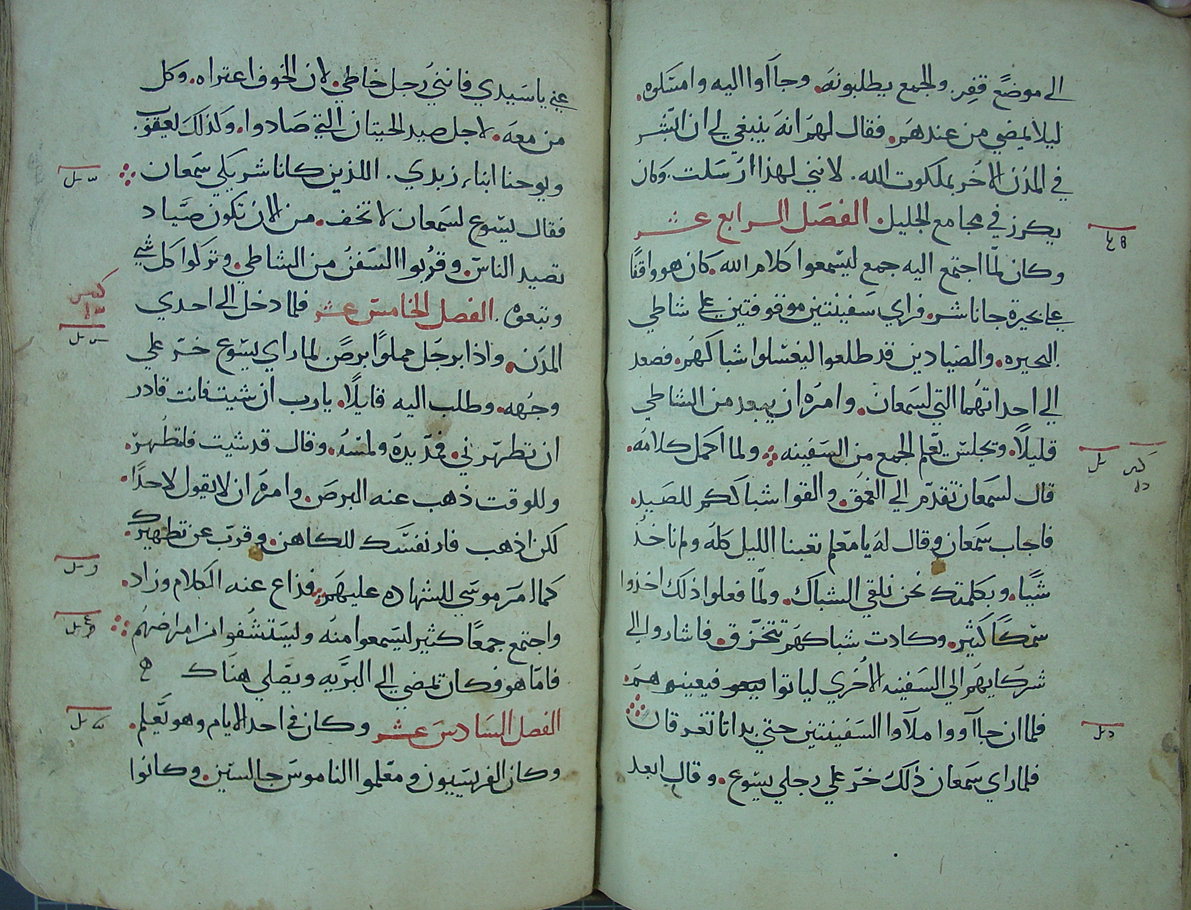 الى موضع قفر. والجمع يطلبونه. وجاآوا اليه وامسكوه.
ليلا يمضي من عندهم. فقال لهم انه ينبغي لي ان ابشر
في المدن الاخر بملكوت الله. لانني لهذا ارسلت. وكان
يكرز في مجامع الجليل. الفصل الرابع عشر
وكان لما اجتمع اليه جمع ليسمعوا كلام الله. كان هو واقفًا
على بحيرة جاناشر. فراي سفينتين موقوفتين على شاطي
البحيره. والصيادين قد طلعوا ليغسلوا شباكهم. فصعد
الى احداتهما التي لسمعان. وامره ان يبعد من الشاطي
قليلًا. وجلس يعلم الجمع من السفينه. ولما اكمل كلامه.
قال لسمعان تقدم الى العمق. والقوا شباككم للصيد.
فاجاب سمعان وقال له يا معلم تعبنا الليل كله ولم ناخذ
شيًا. وبكلمتك نحن نلقي الشباك. ولما فعلوا ذلك اخذوا
سمكًا كثير. وكادت شباكهم تتخرق. فاشاروا الى
شركايهم الى السفينه الاخري لياتوا فيعينوهم.
فلما ان جاآوو املاوا السفينتين حتي بداتا تغرقان
فلما راي سمعان ذلك خر على رجلي يسوع. وقال ابعد
عني يا سيدي فانني رجل خاطي. لان الخوف اعتراه. وكل
من معه. لاجل صيد الحيتان التي صادوا. وكذلك يعقوب.
ويوحنا ابناء زبدي. اللذين كانا شريكي سمعان
فقال يسوع لسمعان لا تخف. من الان تكون صياد
تصيد الناس. وقربوا السفن من الشاطي. وتركوا كل شي
وتبعوه. الفصل الخامس عشر فلما دخل الى احدي
المدن. واذا برجل مملوًا برص. لما راي يسوع خر علي
وجهه. وطلب اليه قايلًا. يارب ان شيت فانت قادر
ان تطهرني. فمد يده ولمسه. وقال قد شيت فلتطهر.
وللوقت ذهب عنه البرص. وامره ان لا يقول لاحدًا.
لكن اذهب فار نفسك للكاهن. وقرب عن تطهيرك.
كما امر موسي للشهاده عليهم. فذاع عنه الكلام وزاد.
واجتمع جمعًا كثير ليسمعوا منه وليستشفوا من امراضهم
فاما هو فكان يمضي الى البريه ويصلي هناك
الفصل السادس عشر وكان في احد الايام وهو يعلم.
وكان الفريسيون ومعلموا الناموس جالسين. وكانوا